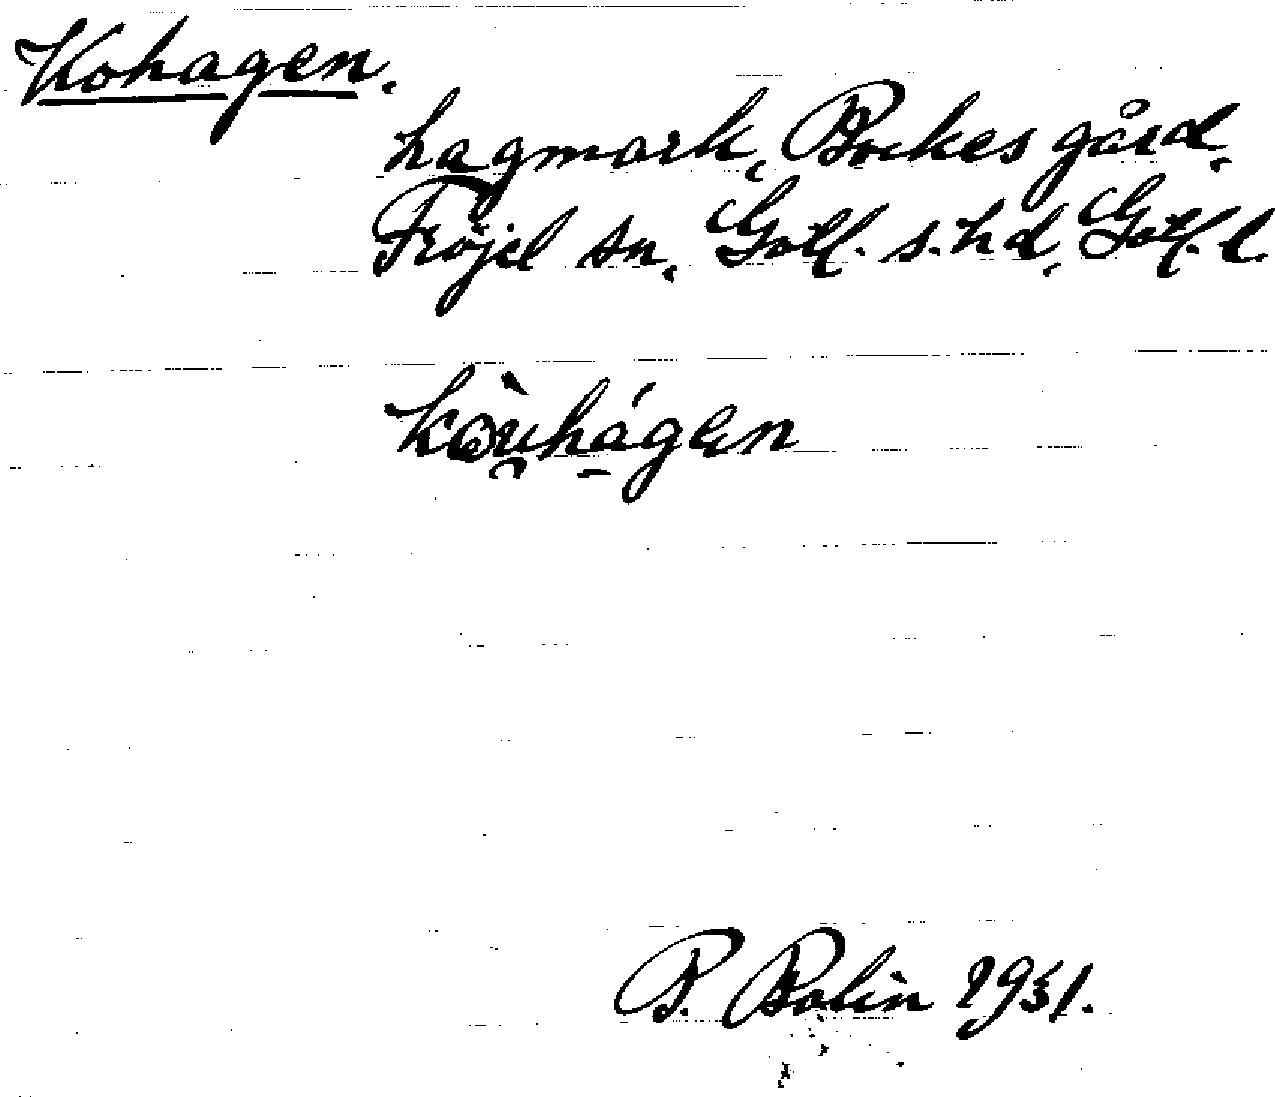 Kohagen.
hagmark, Bockes gård,
Fröjel sn, Gotl. s. hd, Gotl. l.
P. Bolin 1931.